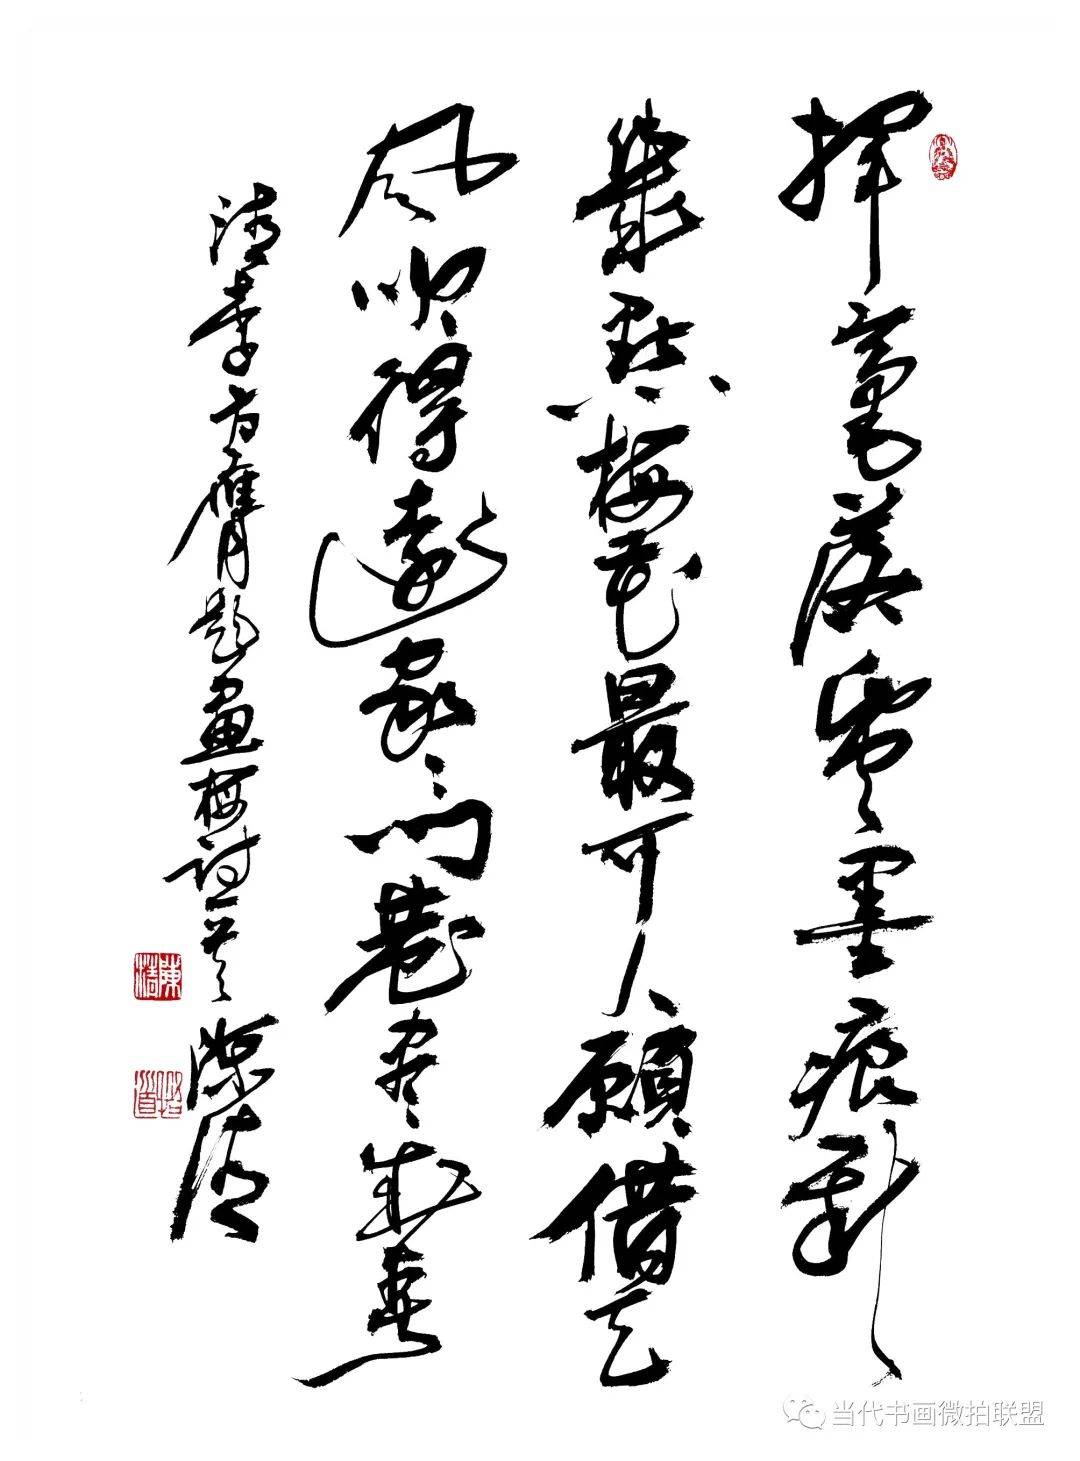 揮毫落紙墨痕新
幾點梅花最可人願借天
風吹得遠家家門巷盡成春
清李方膺題畫梅詩一首 陳濤
陳濤
当代书画微拍联盟